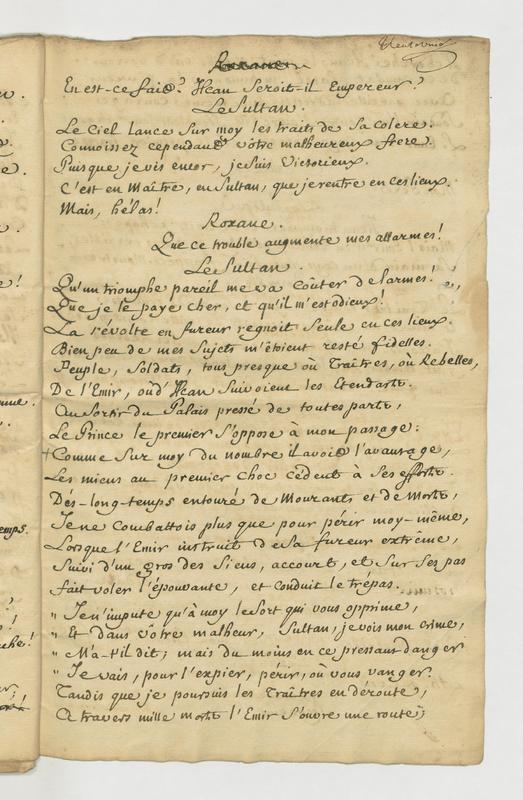 En est-ce fait? Ysean Seroit-il Empereur?
Le Sultan.
Le Ciel lance Sur moy les traits de Sa Colere.
Connoissez cependant vôtre malheureux frere.
Puis que je vis encor, je Suis Victorieux.
C'est en Maître, en Sultan, que je rentre en ces lieux.
Mais, hélas!
Roxane.
Que ce trouble augmente mes allarmes!
Le Sultan.
Qu'un triomphe pareil me va coûter de larmes!
Que je le paye cher, et qu'il m'est odieux!
La révolte en fureur regnoit Seule en ces lieux.
Bien peu de mes Sujets m'étoient resté fidelles.
Peuple, Soldats, tous presque où Traîtres, où Rebelles,
De l'Emir, où d'Ysean Suivoient les Etendarts.
Au Sortir du Palais pressé de toutes parts,
Le Prince le premier S'oppose à mon passage:
+ Comme Sur moy du nombre il avoit l'avantage,
Les miens au premier choc cédent à Ses efforts.
Dés-long-temps entouré de Mourants et de Morts,
Je ne Combattois plus que pour périr moy-même,
Lorsque l'Emir instruit de Sa fureur extrême,
Suivi d'un gros des Siens, accourt, et Sur Ses pas
fait voler l'épouvante, et conduit le trépas.
" Je n'impute qu'à moy le Sort qui vous opprime,
" Et dans vôtre malheur, Sultan, je vois mon crime,
" M'a-t'il dit; mais du moins en ce pressant danger
" Je vais, pour l'expier, périr, où vous vanger.
Tandis que je poursuis les Traîtres en déroute,
A travers mille morts l'Emir S'ouvre une route;